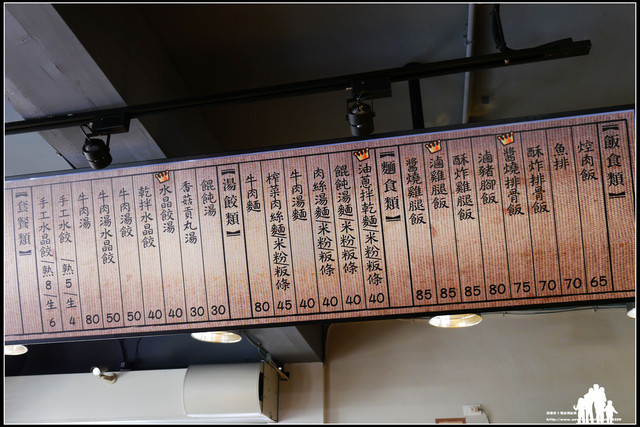 【飯類】
焢肉飯 65
魚排 70
酥炸排骨飯 70
醬燒排骨飯 75
滷豬腳飯 80
酥炸雞腿飯 85
滷雞腿飯 85
醬燒雞腿飯 85
【麵食類】
油蔥拌乾麵/米粉/粄條 40
餛飩湯麵/米粉/粄條 40
肉絲湯麵/米粉/粄條 40
牛肉湯麵 40
榨菜肉絲麵/米粉/粄條 45
牛肉麵 80
【湯餃類】
餛飩湯 30
香菇貢丸湯 30
水晶餃湯 40
乾拌水晶餃 40
牛肉湯餃 50
牛肉湯水晶餃 50
牛肉湯 80
手工水餃/熟5/生4
手工水晶餃/熟8/生6
【套餐類】